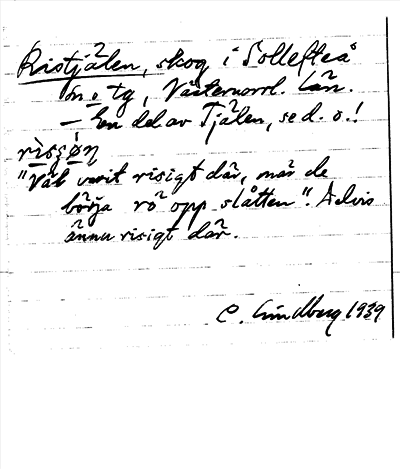 Ristjälen, skog i Sollefteå
sn o tg, Västernorrl. län.
– En del av Tjälen, se d. o.!
"Vát varit risigt där, när de
börja rö opp slåtten". Delvis
ännu risigt där.
C. Lindberg 1939